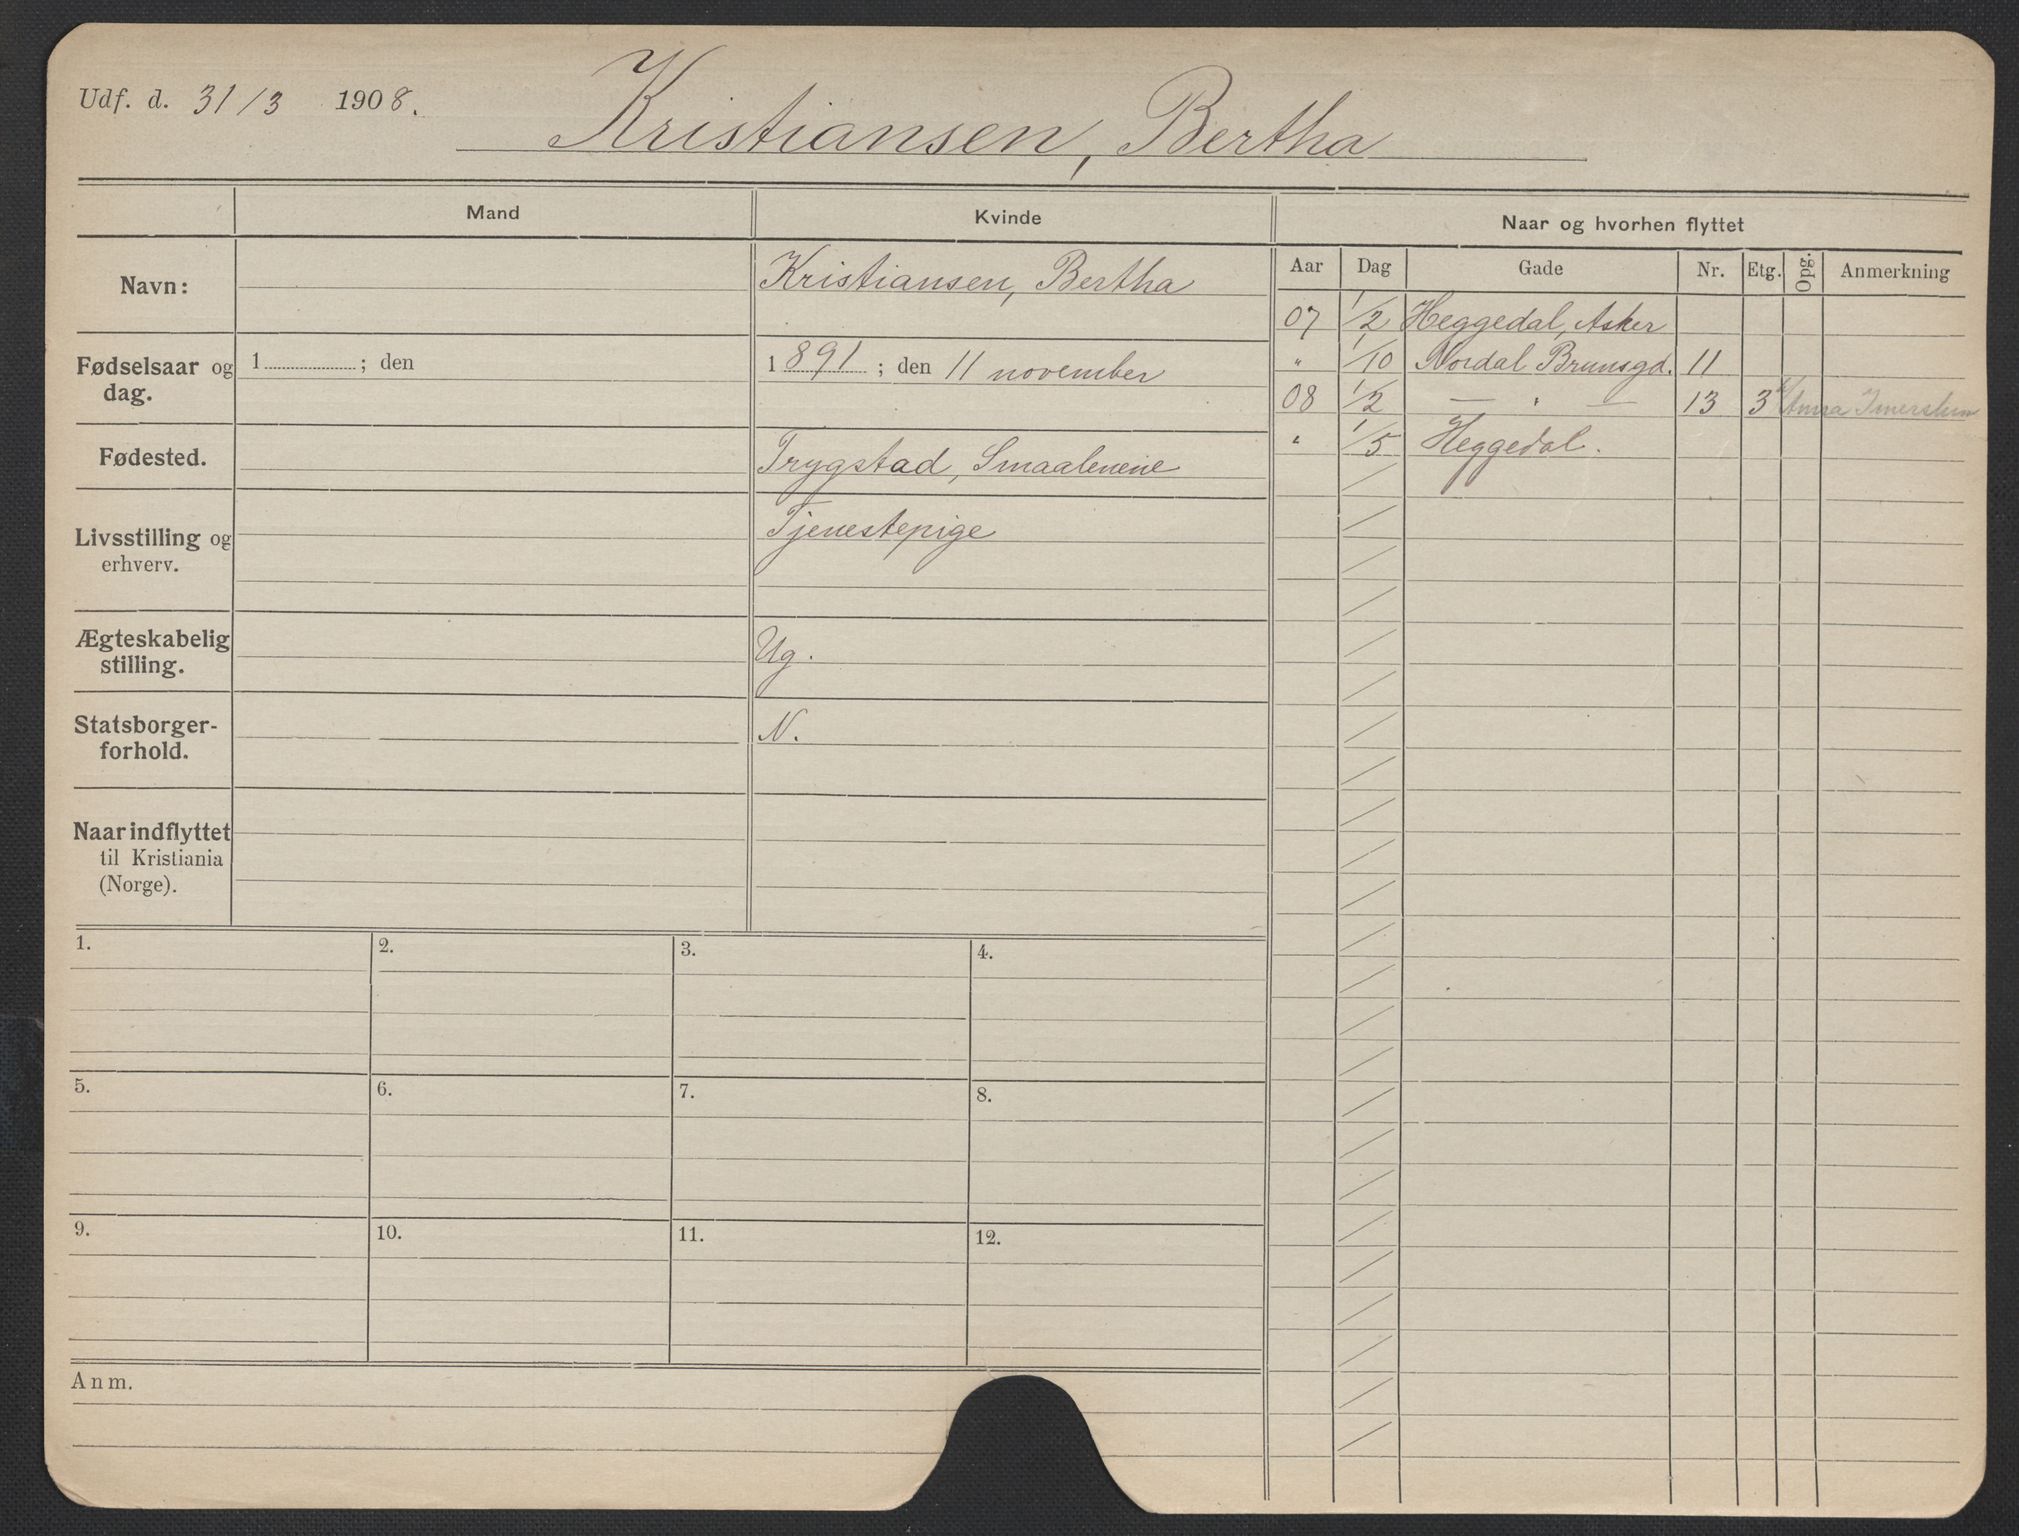 Udf. d. 31/3 1908.
Kristiansen, Bertha
Mand
Kvinde
Naar og hvorhen flyttet
Navn:
Kristiansen, Bertha
Fødselsaar og dag.
1 ; den
1891 ; den 11 november
Fødested.
Trygstad, Smaalenene
Livsstilling og erhverv.
Tjenestepige
Ægteskabelig stilling.
Ug.
Statsborgerforhold.
N.
Naar indflyttet
til Kristiania
(Norge).
Aar Dag Gade Nr. Etg. Opg. Anmerkning
07 1/2 Heggedal, Asker
" 1/10 Nordal Brunsgd. 11
08 1/2 — " — 13 3 Anna
" 1/5 Heggedal.
1. 2. 3. 4.
5. 6. 7. 8.
9. 10. 11. 12.
Anm.